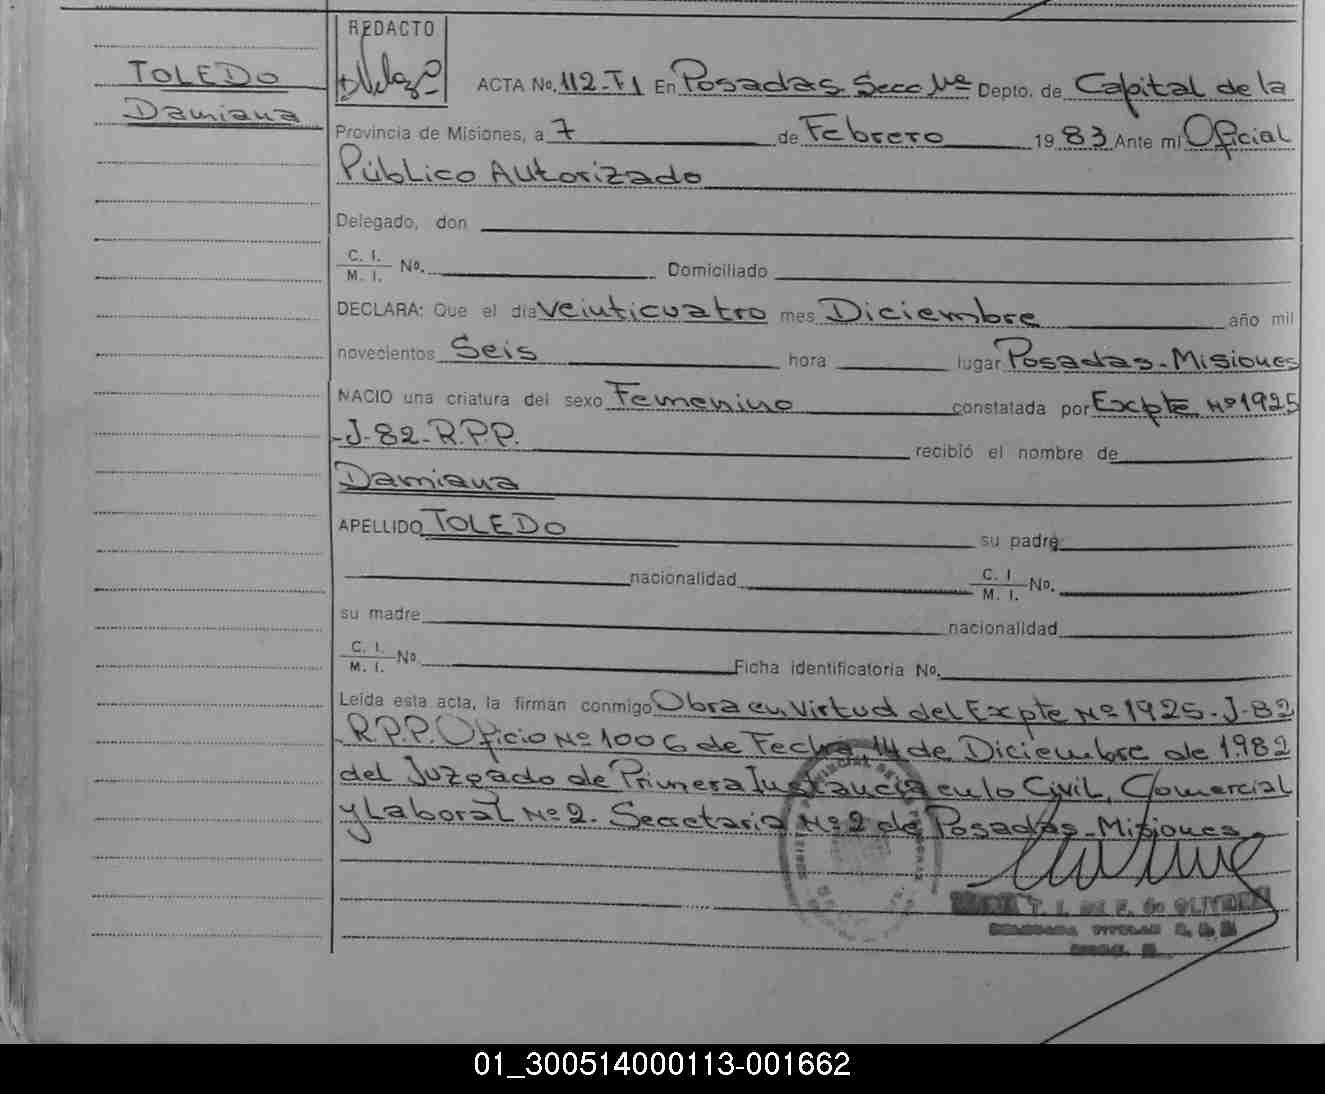 REDACTO
TOLEDO
Damiana
ACTA No. 112-T1 En Posadas Secc 1ra Depto. de Capital de la
Provincia de Misiones, a 7 de Febrero 1983 Ante mí Oficial
Público Autorizado
Delegado, don
C. I. M. I. No. Domiciliado
DECLARA: Que el día Veinticuatro mes Diciembre año mil
novecientos Seis hora lugar Posadas - Misiones
NACIO una criatura del sexo Femenino constatada por Excpte Nº 1925
-J-82-R.P.P. recibió el nombre de
Damiana
APELLIDO TOLEDO su padre
nacionalidad C. I M. I. No.
su madre nacionalidad
C. I. M. I. No Ficha identificatoria No.
Leída esta acta, la firman conmigo Obra en Virtud del Excpte Nº 1925-J-82
R.P.P. Oficio Nº 1006 de Fecha 14 de Diciembre de 1982
del Juzgado de Primera Instancia en lo Civil, Comercial
y Laboral Nº 2. Secretaria Nº 2 de Posadas - Misiones
01_300514000113-001662